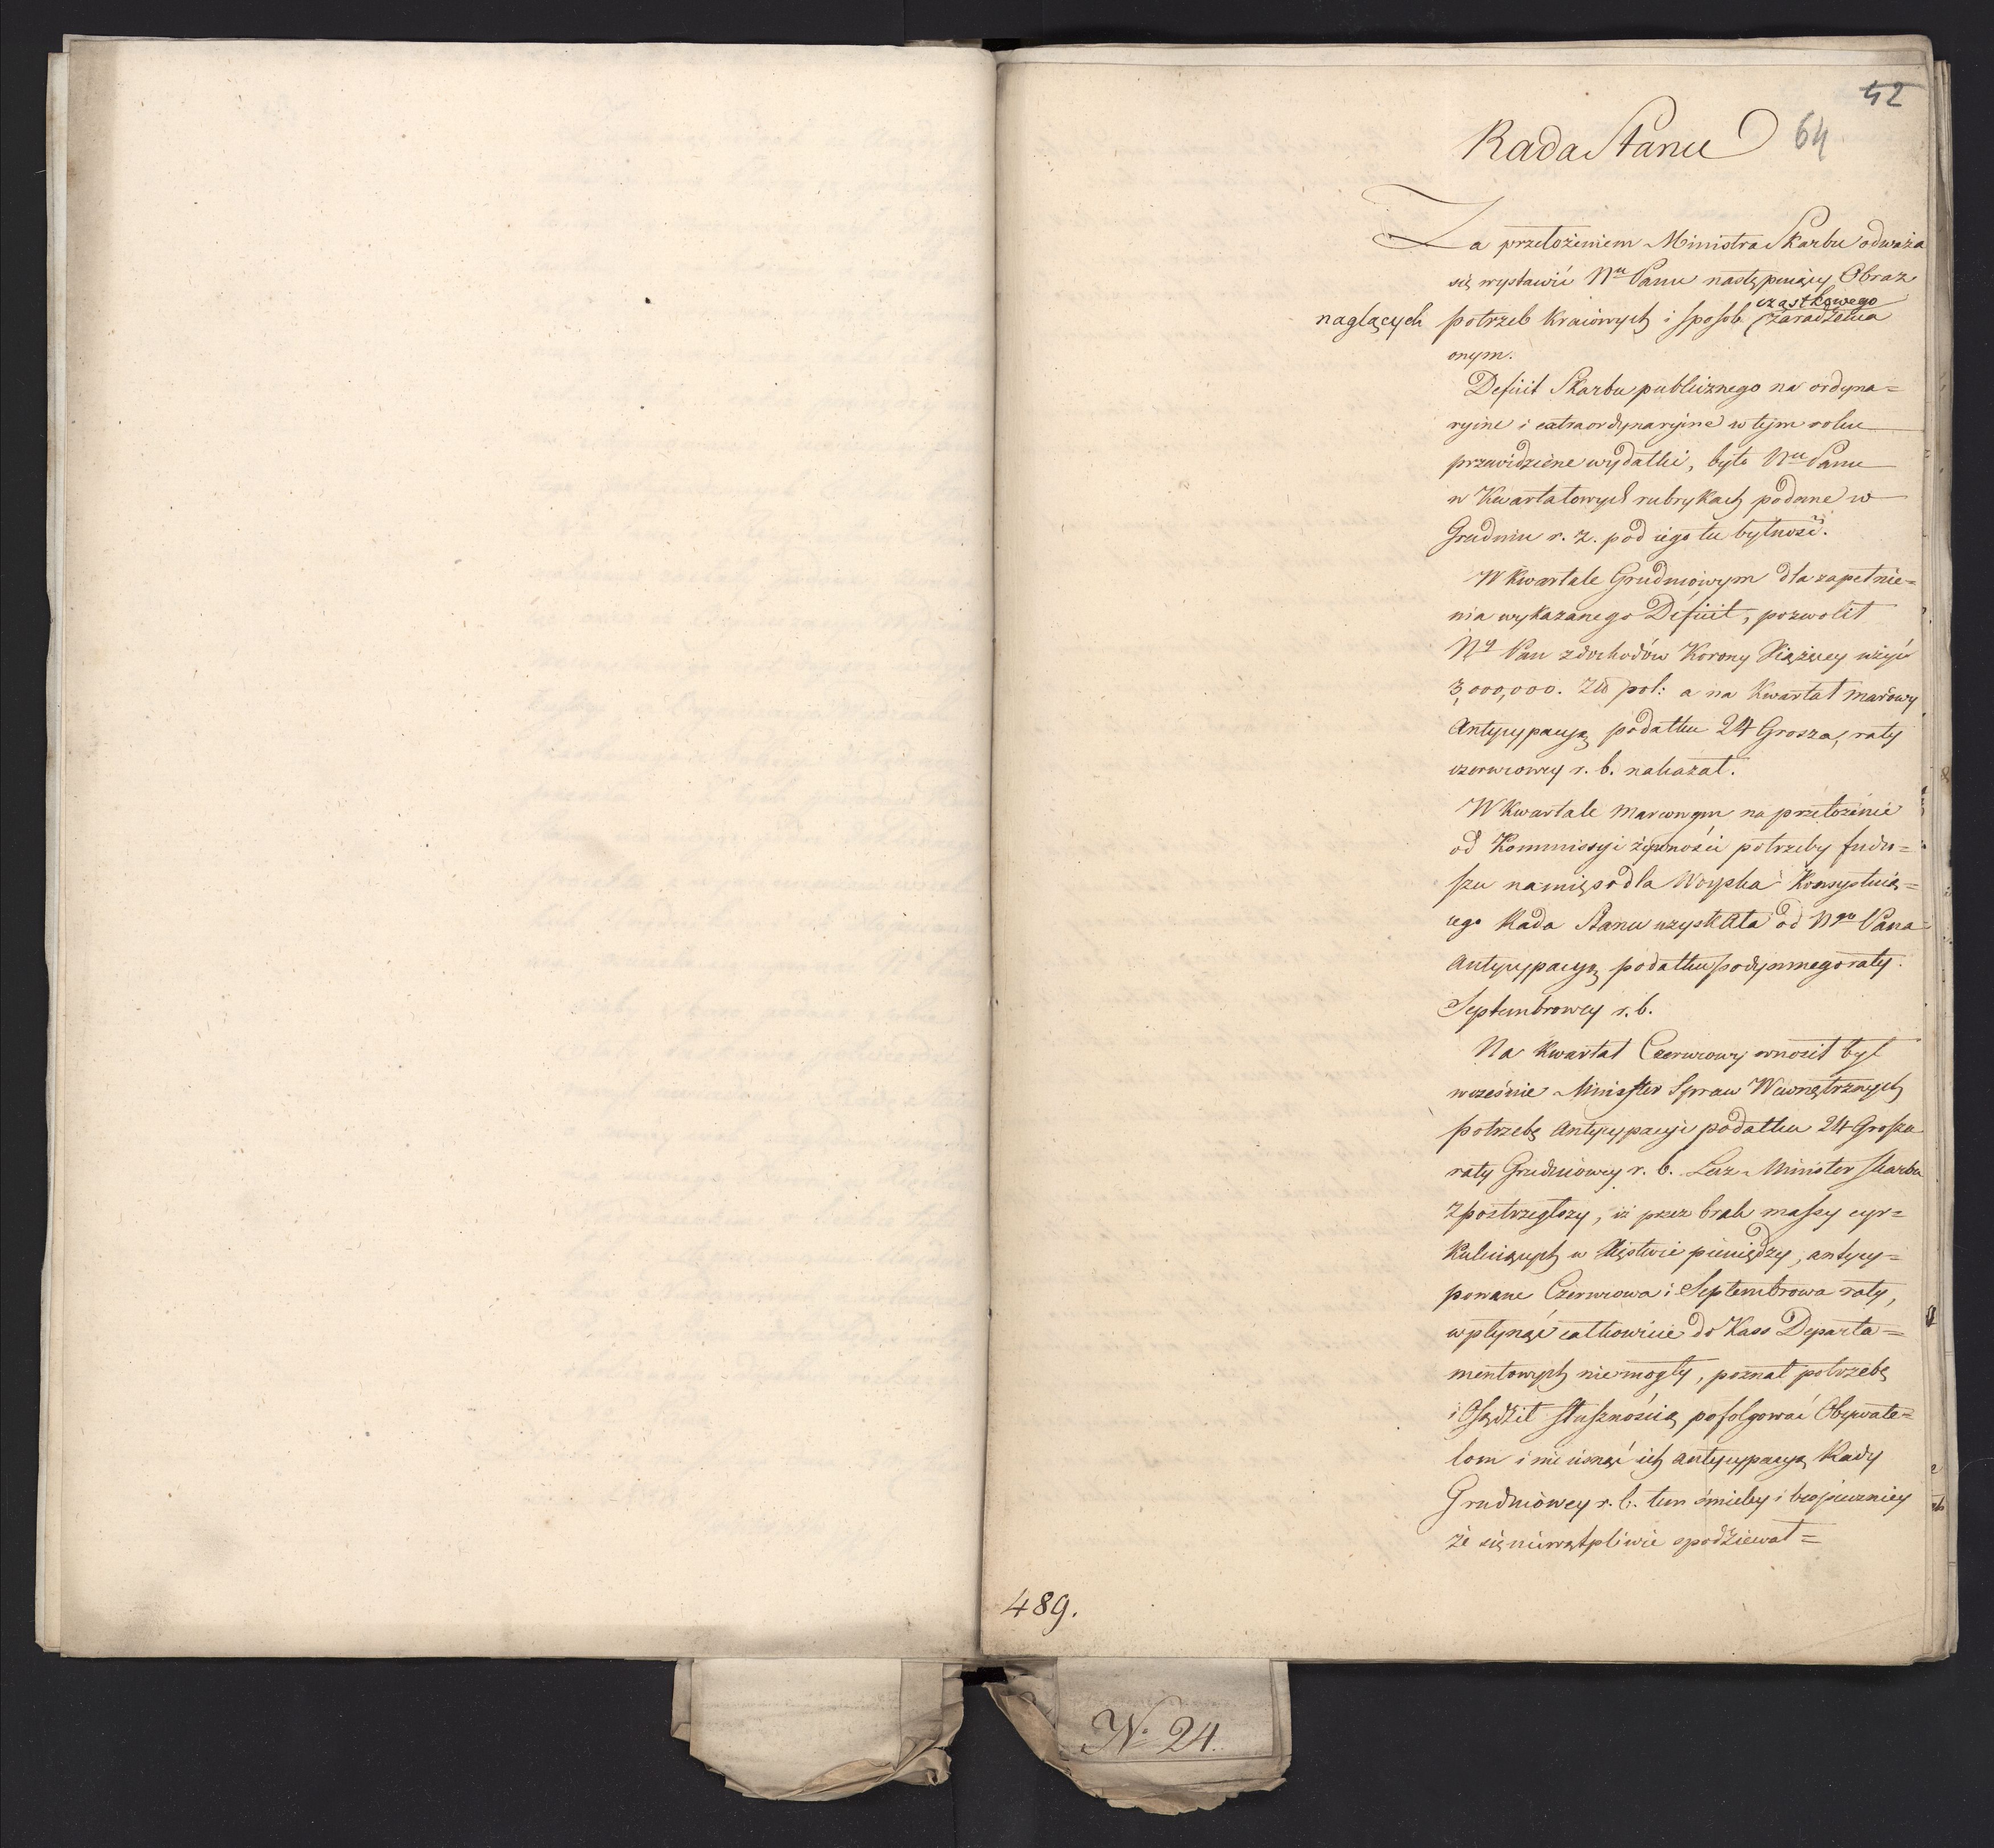 42
Rada Stanu
64
Za przełożeniem Ministra Skarbu odważa
się wystawić Nu Panu następuiący Obraz
cząstkowego
naglących potrzeb kraiowych i sposob zaradzenia
onym.
Deficit Skarbu publicznego na ordyna=
ryine i extraordynaryine w tym roku
przewidziene wydatki, było Nu Panu
w Kwartałowych rubrykach podane w
Grudniu r. z. pod iego tu bytność.
W Kwartale Grudniowym dla zapełnie=
nia wykazanego Deficit, pozwolił
Ny Pan z dochodów Korony Xiążęcey użyć
3,000,000. Złł pol: a na Kwartał marcowy
Antycypacyą podatku 24 Grosza, raty
czerwcowey r. b. nakazał.
W Kwartale marcowym na przełożenie
od Kommissyi żywności potrzeby fudu=
szu na mięso dla Woyska Konsystuią=
cego Rada Stanu uzyskała od Ngo Pana
Antycypacyą podatku podymnego raty
Septembrowey r. b.
Na Kwartał Czerwcowy wnosił był
wcześnie Minister Spraw Wewnętrznych
potrzebę Antycypacyi podatku 24 Grosza
raty Grudniowey r. b. Lecz Minister Skarbu
zpostrzegłszy, iż przez brak massy cyr=
kuluiących w Xięstwie pieniędzy, antycy=
powane Czerwcowa i Septembrowa raty,
wpłynąć całkowicie do Kass Departa=
mentowych nie mogły, poznał potrzebę
i Osądził słusznością pofolgować Obywate=
lom i nie cisnąć ich antycypacyą Rady
Grudniowey r. b. tem śmieley i bespieczniey
że się niewątpliwie spodziewał=
489.
No 24.